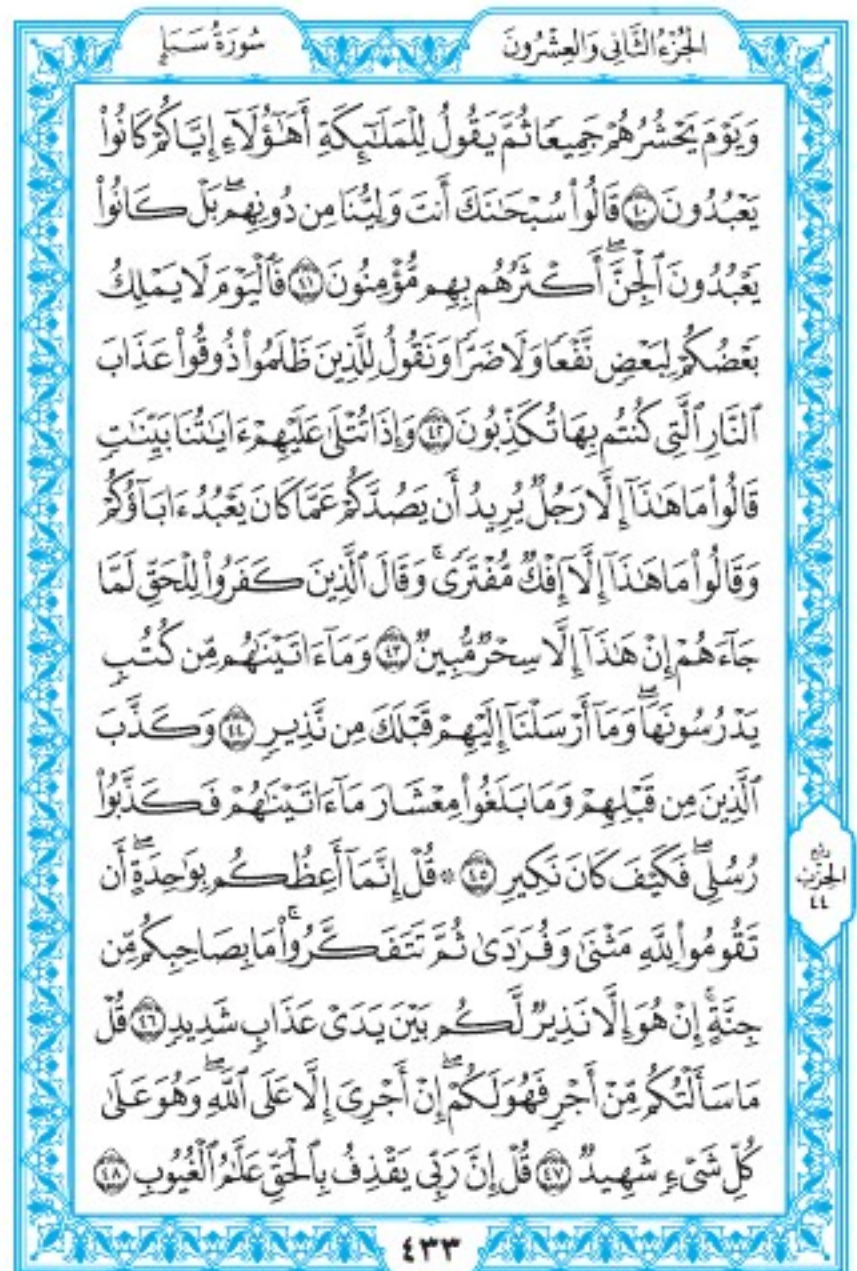 الجُزْءُ الثَّانِي وَالعِشْرُونَ
سُورَةُ سَبَإٍ
وَيَوْمَ يَحْشُرُهُمْ جَمِيعًا ثُمَّ يَقُولُ لِلْمَلَٰٓئِكَةِ أَهَٰٓؤُلَآءِ إِيَّاكُمْ كَانُوا۟
يَعْبُدُونَ ٤٠ قَالُوا۟ سُبْحَٰنَكَ أَنتَ وَلِيُّنَا مِن دُونِهِمۖ بَلْ كَانُوا۟
يَعْبُدُونَ ٱلْجِنَّۖ أَكْثَرُهُم بِهِم مُّؤْمِنُونَ ٤١ فَٱلْيَوْمَ لَا يَمْلِكُ
بَعْضُكُمْ لِبَعْضٍ نَّفْعًا وَلَا ضَرًّا وَنَقُولُ لِلَّذِينَ ظَلَمُوا۟ ذُوقُوا۟ عَذَابَ
ٱلنَّارِ ٱلَّتِى كُنتُم بِهَا تُكَذِّبُونَ ٤٢ وَإِذَا تُتْلَىٰ عَلَيْهِمْ ءَايَٰتُنَا بَيِّنَٰتٍ
قَالُوا۟ مَا هَٰذَآ إِلَّا رَجُلٌ يُرِيدُ أَن يَصُدَّكُمْ عَمَّا كَانَ يَعْبُدُ ءَابَآؤُكُمْ
وَقَالُوا۟ مَا هَٰذَآ إِلَّآ إِفْكٌ مُّفْتَرًىۚ وَقَالَ ٱلَّذِينَ كَفَرُوا۟ لِلْحَقِّ لَمَّا
جَآءَهُمْ إِنْ هَٰذَآ إِلَّا سِحْرٌ مُّبِينٌ ٤٣ وَمَآ ءَاتَيْنَٰهُم مِّن كُتُبٍ
يَدْرُسُونَهَاۖ وَمَآ أَرْسَلْنَآ إِلَيْهِمْ قَبْلَكَ مِن نَّذِيرٍ ٤٤ وَكَذَّبَ
ٱلَّذِينَ مِن قَبْلِهِمْ وَمَا بَلَغُوا۟ مِعْشَارَ مَآ ءَاتَيْنَٰهُمْ فَكَذَّبُوا۟
رُسُلِىۖ فَكَيْفَ كَانَ نَكِيرِ ٤٥ ۞ قُلْ إِنَّمَآ أَعِظُكُم بِوَٰحِدَةٍۖ أَن
تَقُومُوا۟ لِلَّهِ مَثْنَىٰ وَفُرَٰدَىٰ ثُمَّ تَتَفَكَّرُوا۟ۚ مَا بِصَاحِبِكُم مِّن
جِنَّةٍۚ إِنْ هُوَ إِلَّا نَذِيرٌ لَّكُم بَيْنَ يَدَىْ عَذَابٍ شَدِيدٍ ٤٦ قُلْ
مَا سَأَلْتُكُم مِّنْ أَجْرٍ فَهُوَ لَكُمْۖ إِنْ أَجْرِىَ إِلَّا عَلَى ٱللَّهِۖ وَهُوَ عَلَىٰ
كُلِّ شَىْءٍ شَهِيدٌ ٤٧ قُلْ إِنَّ رَبِّى يَقْذِفُ بِٱلْحَقِّ عَلَّٰمُ ٱلْغُيُوبِ ٤٨
ربع
الحزب
٤٤
٤٣٣